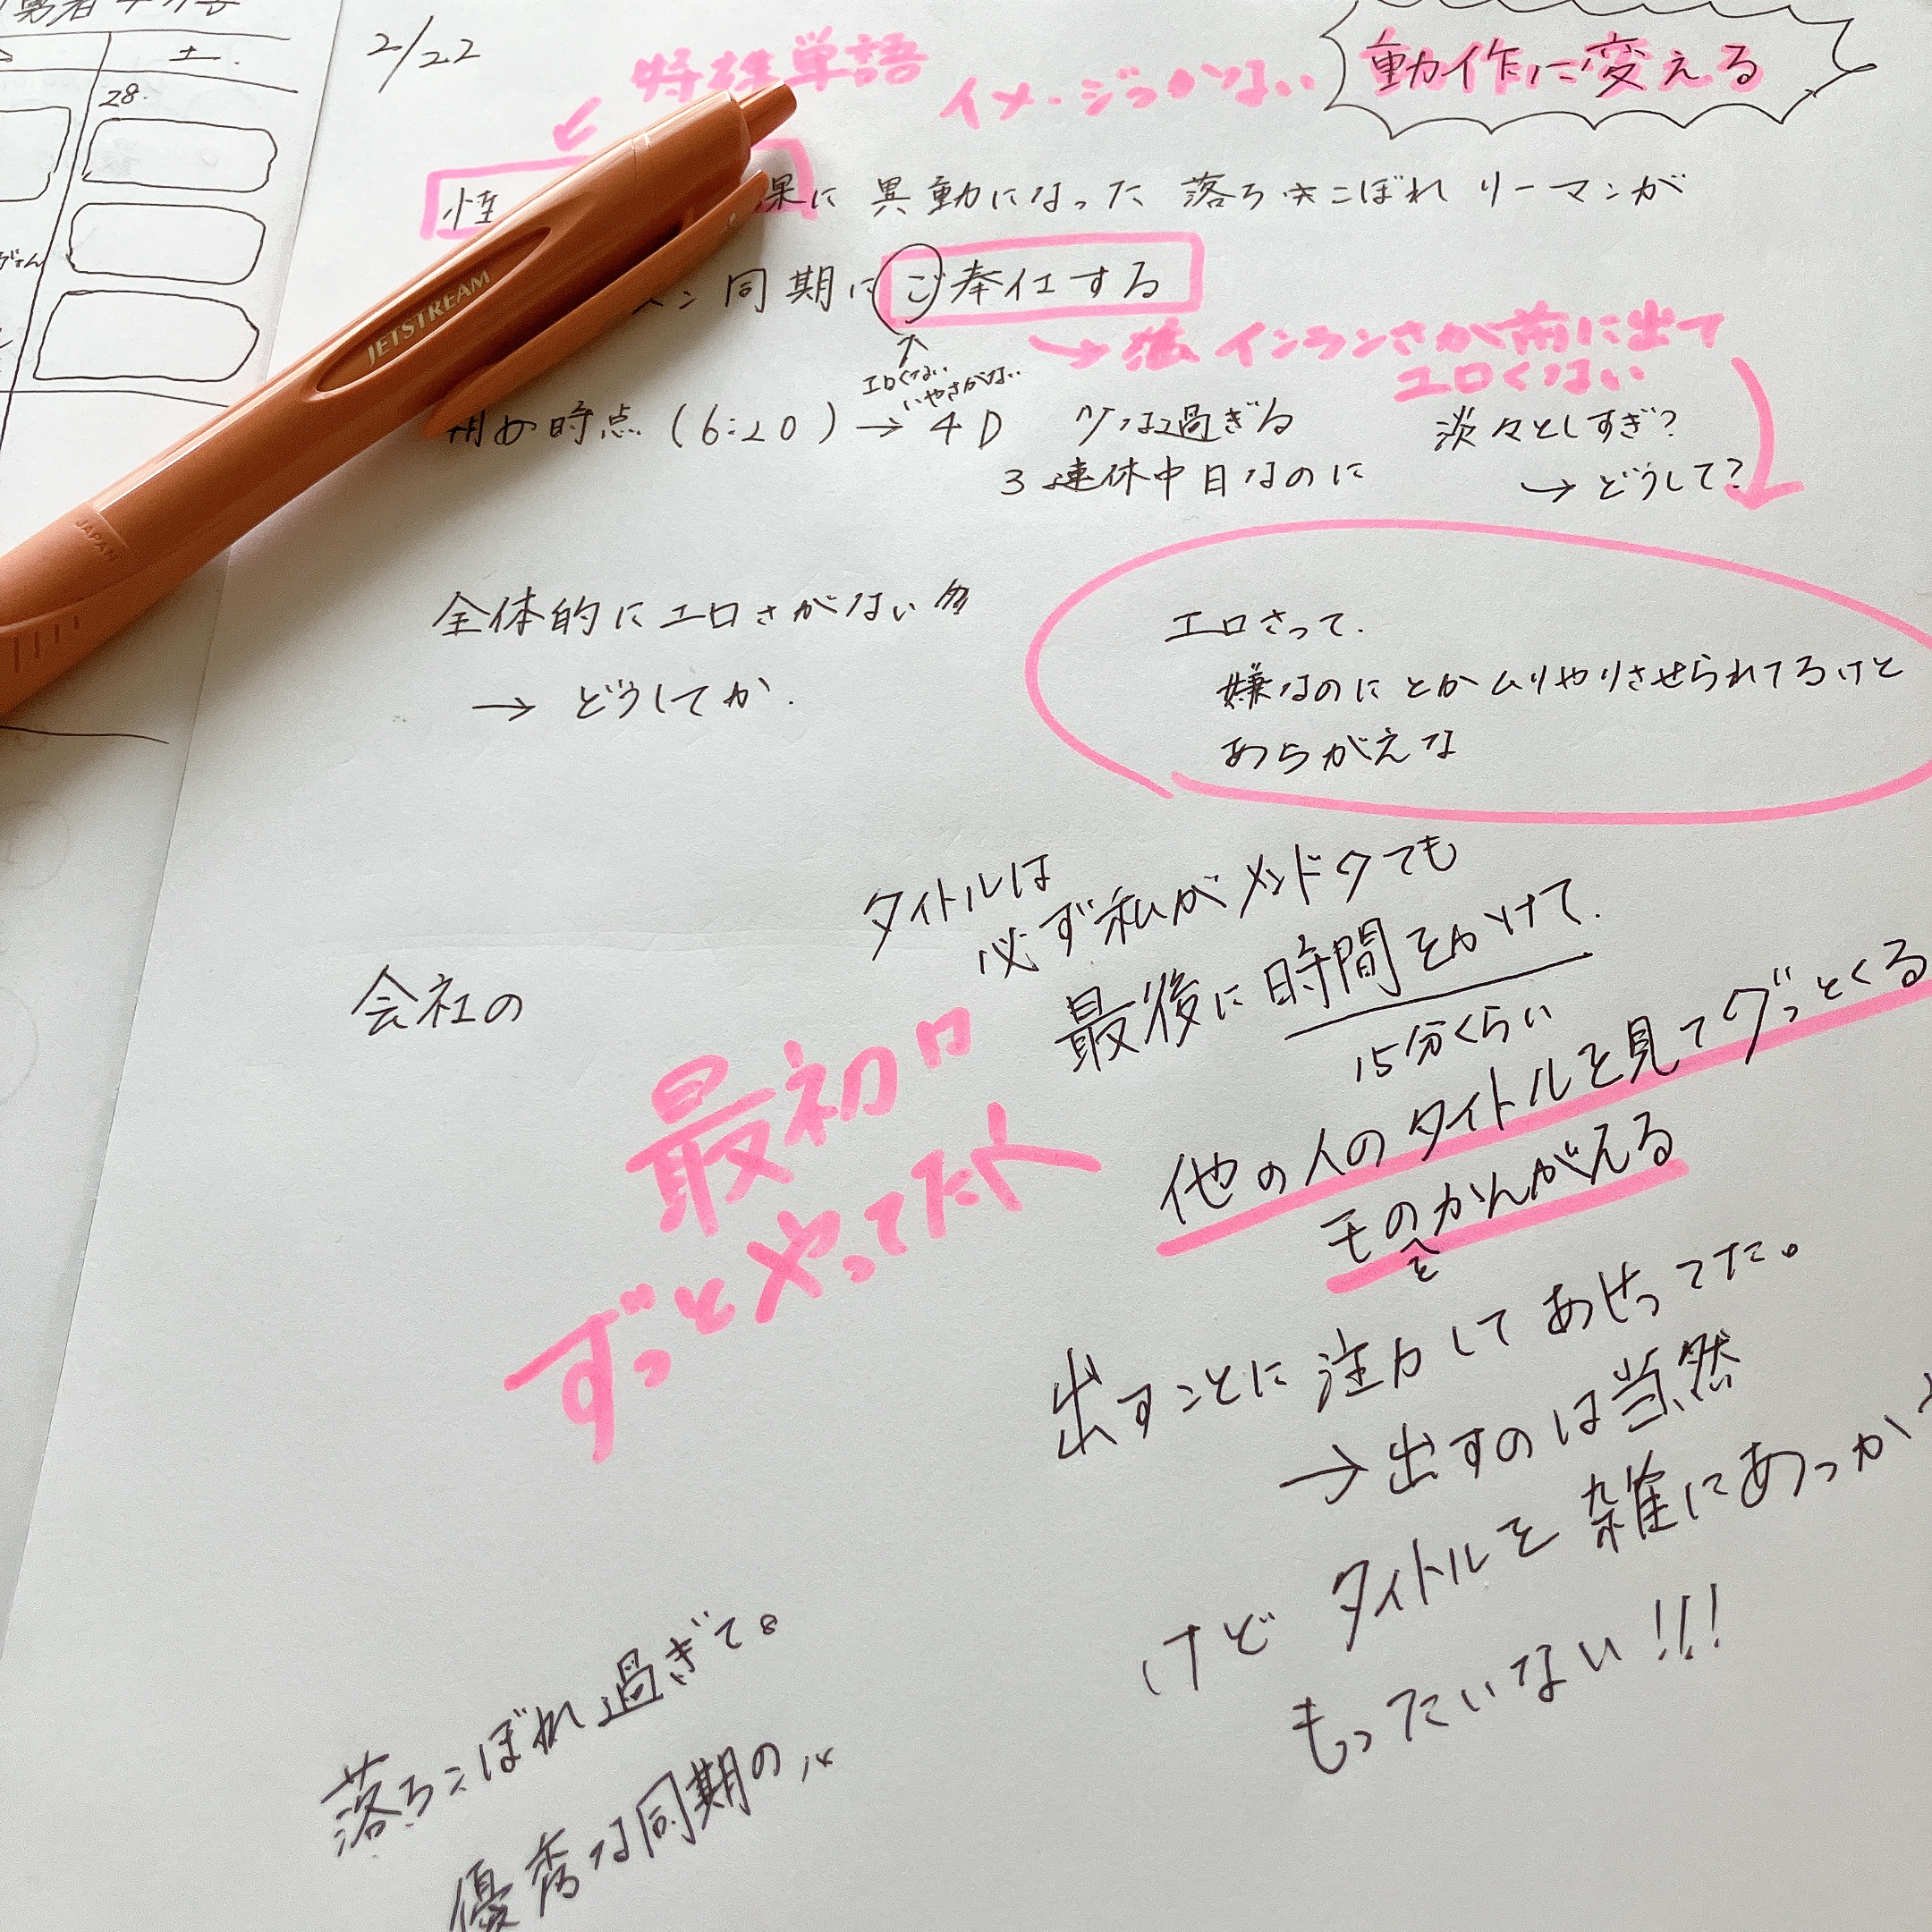 土.
28.
2/22
特殊単語
イメージつかない
動作に変える
性
果に 異動になった 落ちこぼれ リーマンが
同期に ご奉仕する
エロくない
いやさがない
インランさが前に出て
エロくない
時点 (6:20) → 4D
少な過ぎる
3連休中日なのに
淡々としすぎ?
→ どうして?
JETSTREAM
JAPAN
全体的にエロさがない
→ どうしてか.
エロさって.
嫌なのにとかムリやりさせられてるけど
あらがえな
タイトルは
必ず私がメンドクても
最後に時間をかけて.
15分くらい
会社の
最初
ずっとやってた
他の人のタイトルを見てグッとくる
モのをかんがえる
出すことに注力してあせってた。
→ 出すのは当然
けど タイトルを雑にあつか
もったいない!!!
落ちこぼれ過ぎて。
優秀な同期の